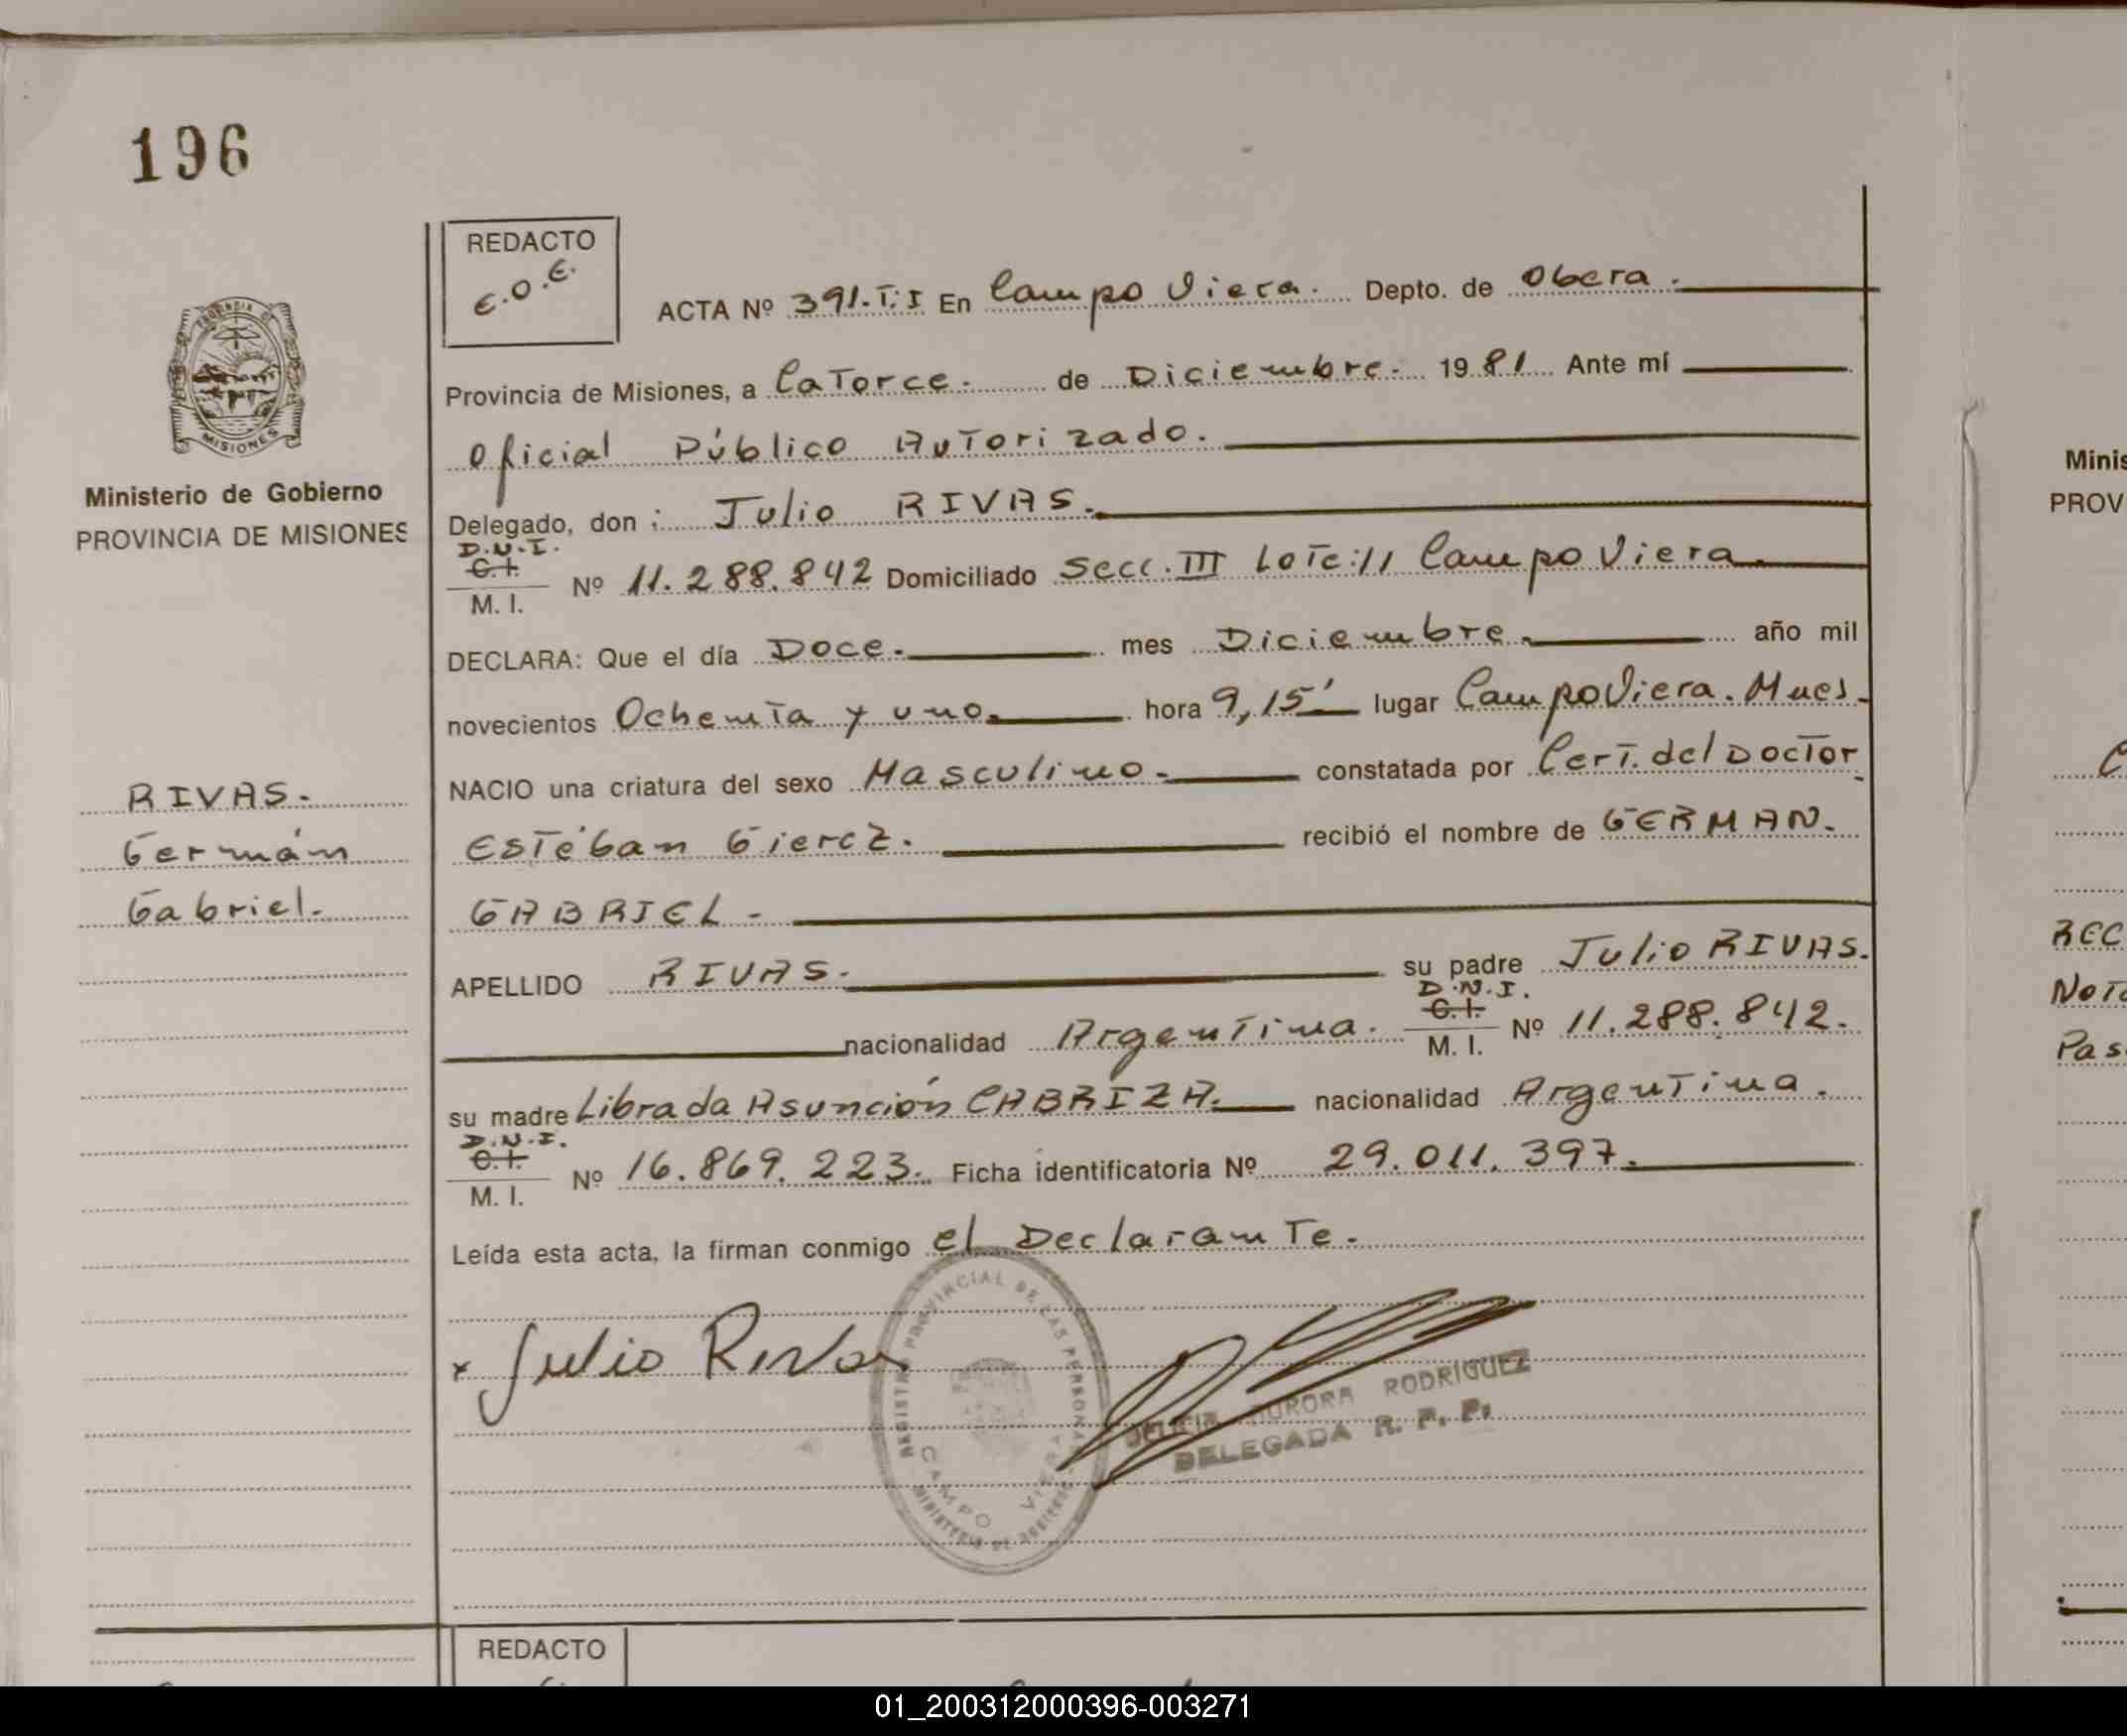 196
REDACTO
E.O.E.
ACTA Nº 391.T:I En Campo Viera. Depto. de Obera.
Provincia de Misiones, a Catorce. de Diciembre. 1981 Ante mí
Oficial Público Autorizado.
Ministerio de Gobierno
PROVINCIA DE MISIONES
Delegado, don : Julio RIVAS.
D.N.I.
C.I.
M. I. Nº 11.288.842 Domiciliado Secc. III Lote: 11 Campo Viera
DECLARA: Que el día Doce. mes Diciembre. año mil
novecientos Ochenta y uno. hora 9,15' lugar Campo Viera. Mnes.
NACIO una criatura del sexo Masculino. constatada por Cert. del Doctor
Estéban Gierez. recibió el nombre de GERMAN.
GABRIEL -
RIVAS.
Germán
Gabriel.
APELLIDO RIVAS. su padre Julio RIVAS.
nacionalidad Argentina. D.N.I.
C.I.
M. I. Nº 11.288.842.
su madre Librada Asunción CABRIZA. nacionalidad Argentina.
D.N.I.
C.I.
M. I. Nº 16.869.223. Ficha identificatoria Nº 29.011.397.
Leída esta acta, la firman conmigo el Declarante.
x Julio Rivas
REGISTRO PROVINCIAL DE LAS PERSONAS
CAMPO VIERA
MINISTERIO DE GOBIERNO
AURORA RODRIGUEZ
DELEGADA R. P. P.
REDACTO
Minis
PROV
REC
Pas
01_200312000396-003271